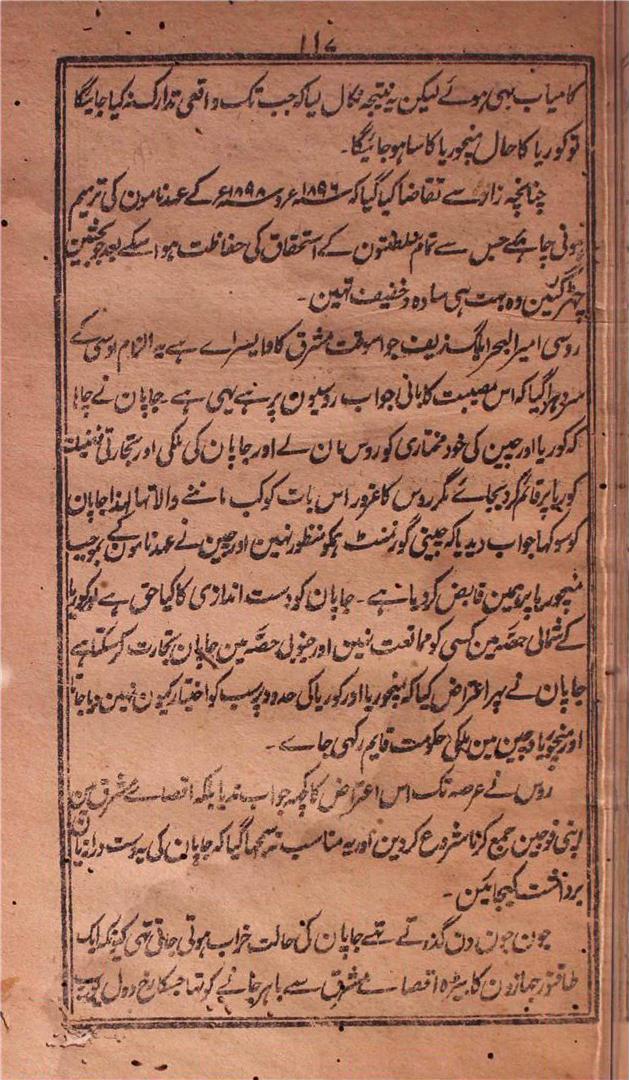 ۱۱۷
کامیاب بہی ہوئے لیکن یہ نتیجہ نکال لیا کہ جب تک واقعی تدارک نہ کیا جائیگا
تو کوریا کا حال منچوریا کا سا ہو جائیگا۔
چنانچہ زار سے تقاضا کیا گیا کہ سنہ ۱۸۹۶ء و سنہ ۱۸۹۸ء کے عہد نامون کی ترمیم
ہونی چاہئے جس سے تمام سلطنتون کے استحقاق کی حفاظت ہو اسکے بعد جو بحثین
چھڑ گئین وہ بہت ہی سادہ و خفیف تہین۔
روسی امیر البحر الگزیف جو اسوقت مشرق کا وایسراے ہے یہ الزام اوسی کے
سر دہرا گیا کہ اس مصیبت کا بانی جواب روسیون پر ہے یہی ہے۔ جاپان نے چاہا
کہ کوریا اور چین کی خود مختاری کو روس مان لے اور جاپان کی ملکی اور تجارتی فضیلت
کوریا پر قائم کر دیجائے مگر روس کا غرور اس بات کو کب ماننے والا تہا لہذا جاپان
کو سوکہا جواب دیدیا کہ چینی گورنمنٹ ہمکو منظور نہین اور چین نے عہد نامون کے بموجب
منچوریا پر ہمین قابض کر دیا ہے۔ جاپان کو دست اندازی کا کیا حق ہے اور کوریا
کے شمالی حصہ مین کسی کو ممانعت نہین اور جنوبی حصہ مین جاپان تجارت کر سکتا ہے
جاپان نے پہر اعتراض کیا کہ منچوریا اور کوریا کی حدود پر سب کو اختیار کیون نہین دیا جاتا
اور منچوریا و چین مین ملکی حکومت قایم رکہی جاے۔
روس نے عرصہ تک اس اعتراض کا کچہہ جواب ندیا بلکہ اقصاے مشرق مین
اپنی فوجین جمع کرنا شروع کر دین اور یہ مناسب نہ سمجہا گیا کہ جاپان کی یہ دست درازیان
برداشت کیجائین۔
جون جون دن گذرتے تہے جاپان کی حالت خراب ہوتی جاتی تہی کیونکہ ایک
طاقتور جہازون کا بیڑہ اقصاے مشرق سے باہر جانے کو تہا جسکا رخ دول